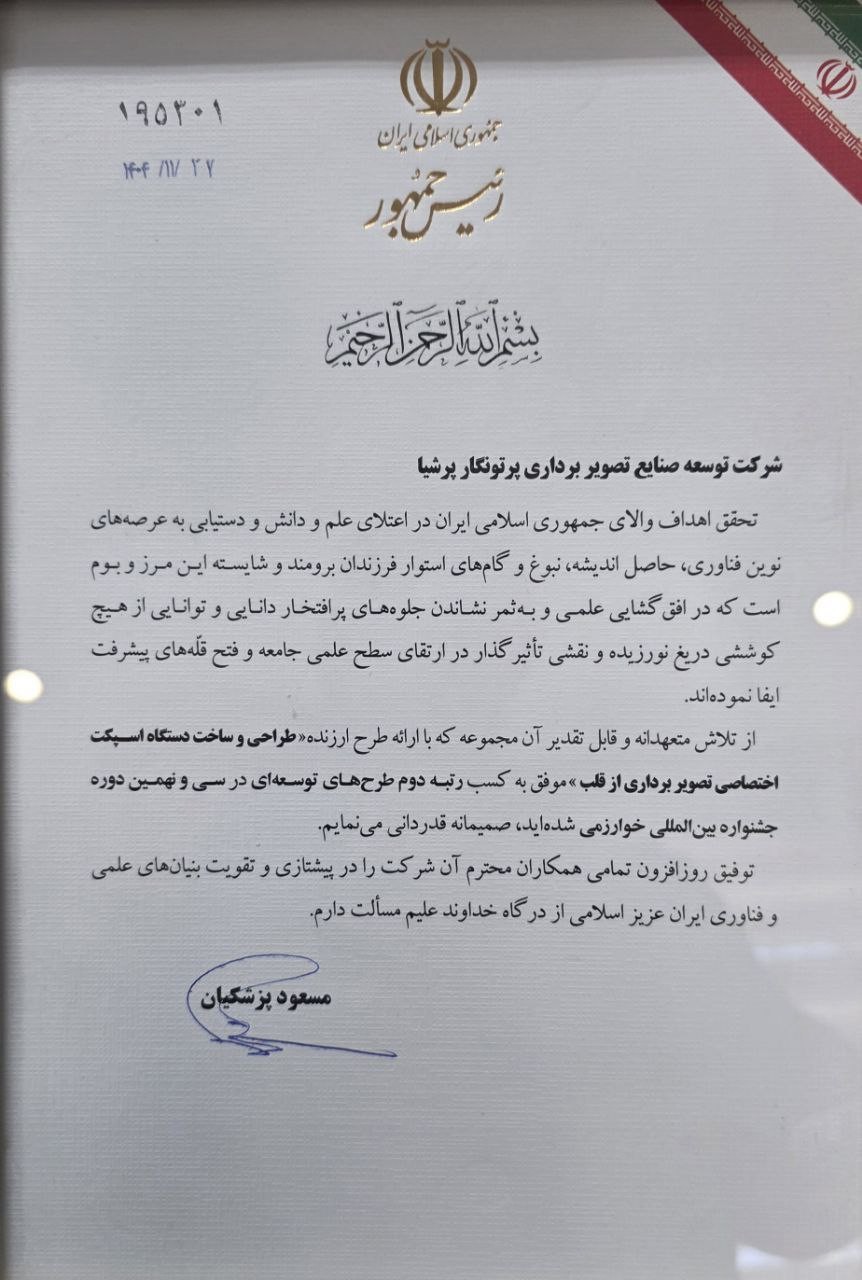 ۱۹۵۳۰۱
۱۴۰۴/۱۱/۲۷
جمهوری اسلامی ایران
رئیس جمهور
بِسْمِ اللَّهِ الرَّحْمَنِ الرَّحِيمِ
شرکت توسعه صنایع تصویر برداری پرتونگار پرشیا
تحقق اهداف والای جمهوری اسلامی ایران در اعتلای علم و دانش و دستیابی به عرصه‌های
نوین فناوری، حاصل اندیشه، نبوغ و گام‌های استوار فرزندان برومند و شایسته این مرز و بوم
است که در افق‌گشایی علمی و به‌ثمر نشاندن جلوه‌های پرافتخار دانایی و توانایی از هیچ
کوششی دریغ نورزیده و نقشی تأثیرگذار در ارتقای سطح علمی جامعه و فتح قلّه‌های پیشرفت
ایفا نموده‌اند.
از تلاش متعهدانه و قابل تقدیر آن مجموعه که با ارائه طرح ارزنده«طراحی و ساخت دستگاه اسپکت
اختصاصی تصویر برداری از قلب »موفق به کسب رتبه دوم طرح‌های توسعه‌ای در سی و نهمین دوره
جشنواره بین‌المللی خوارزمی شده‌اید، صمیمانه قدردانی می‌نمایم.
توفیق روزافزون تمامی همکاران محترم آن شرکت را در پیشتازی و تقویت بنیان‌های علمی
و فناوری ایران عزیز اسلامی از درگاه خداوند علیم مسألت دارم.
مسعود پزشکیان